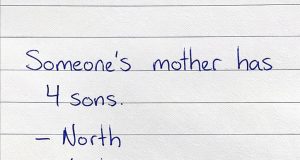 Someone's mother has
4 sons.
- North